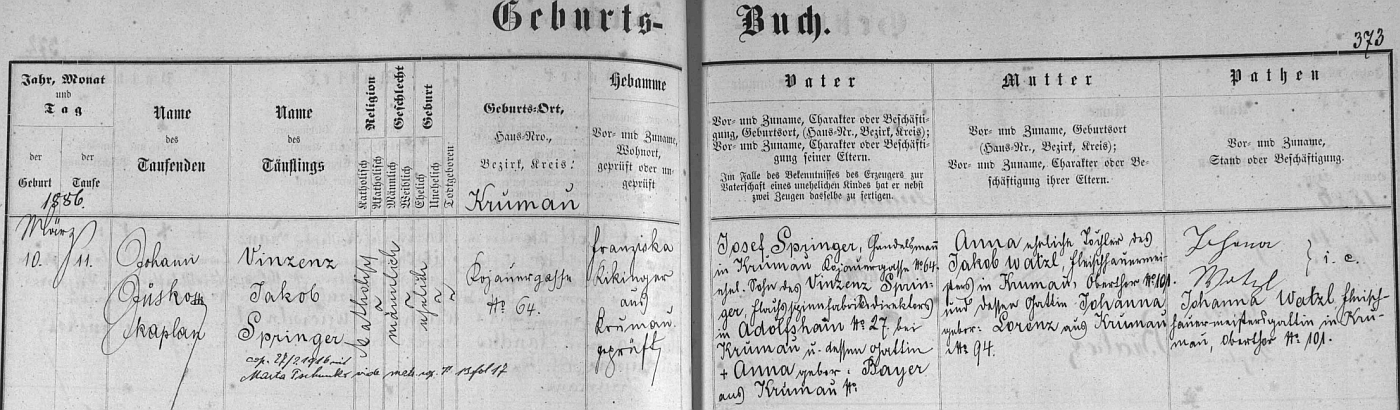 Geburts- Buch.
373
Jahr, Monat
und
Tag
der
Geburt
der
Taufe
1886.
Name
des
Taufenden
Name
des
Täuflings
Religion
Katholisch
Akatholisch
Geschlecht
Männlich
Weiblich
Geburt
Ehelich
Unehelich
Todtgeboren
Geburts-Ort,
Haus-Nro.,
Bezirk, Kreis:
Krumau
Hebamme
Vor- und Zuname,
Wohnort,
geprüft oder un-
geprüft
Vater
Vor- und Zuname, Charakter oder Beschäfti-
gung, Geburtsort, (Haus-Nr., Bezirk, Kreis);
Vor- und Zuname, Charakter oder Beschäfti-
gung seiner Eltern.
Im Falle des Bekenntnisses des Erzeugers zur
Vaterschaft eines unehelichen Kindes hat er nebst
zwei Zeugen dasselbe zu fertigen.
Mutter
Vor- und Zuname, Geburtsort
(Haus-Nr., Bezirk, Kreis);
Vor- und Zuname, Charakter oder Be-
schäftigung ihrer Eltern.
Pathen
Vor- und Zuname,
Stand oder Beschäftigung.
März
10. 11.
Johann
Kaplan
Vinzenz
Jakob
Springer
cop. 27/2 1916 mit
Maria
Katholisch
männlich
ehelich
Kojauergasse
№ 64.
Franziska
Kikinger
aus
Krumau
geprüft
Josef Springer, Handelsmann
in Krumau Kojauergasse № 64.
ehel. Sohn des Vinzenz Sprin-
ger, Flachsspinnfabriksdirektors
in Adolfsthal № 27. bei
Krumau u. dessen Gattin
+ Anna geber: Bayer
aus Krumau №
Anna eheliche Tochter des
Jakob Watzl, Fleischhauermei-
sters in Krumau, Oberthor № 101.
und dessen Gattin Johanna
geber: Lorenz aus Krumau
№ 94.
Johana
Watzl
Johanna Watzl Fleisch-
hauermeistersgattin in Kru-
mau, Oberthor № 101.